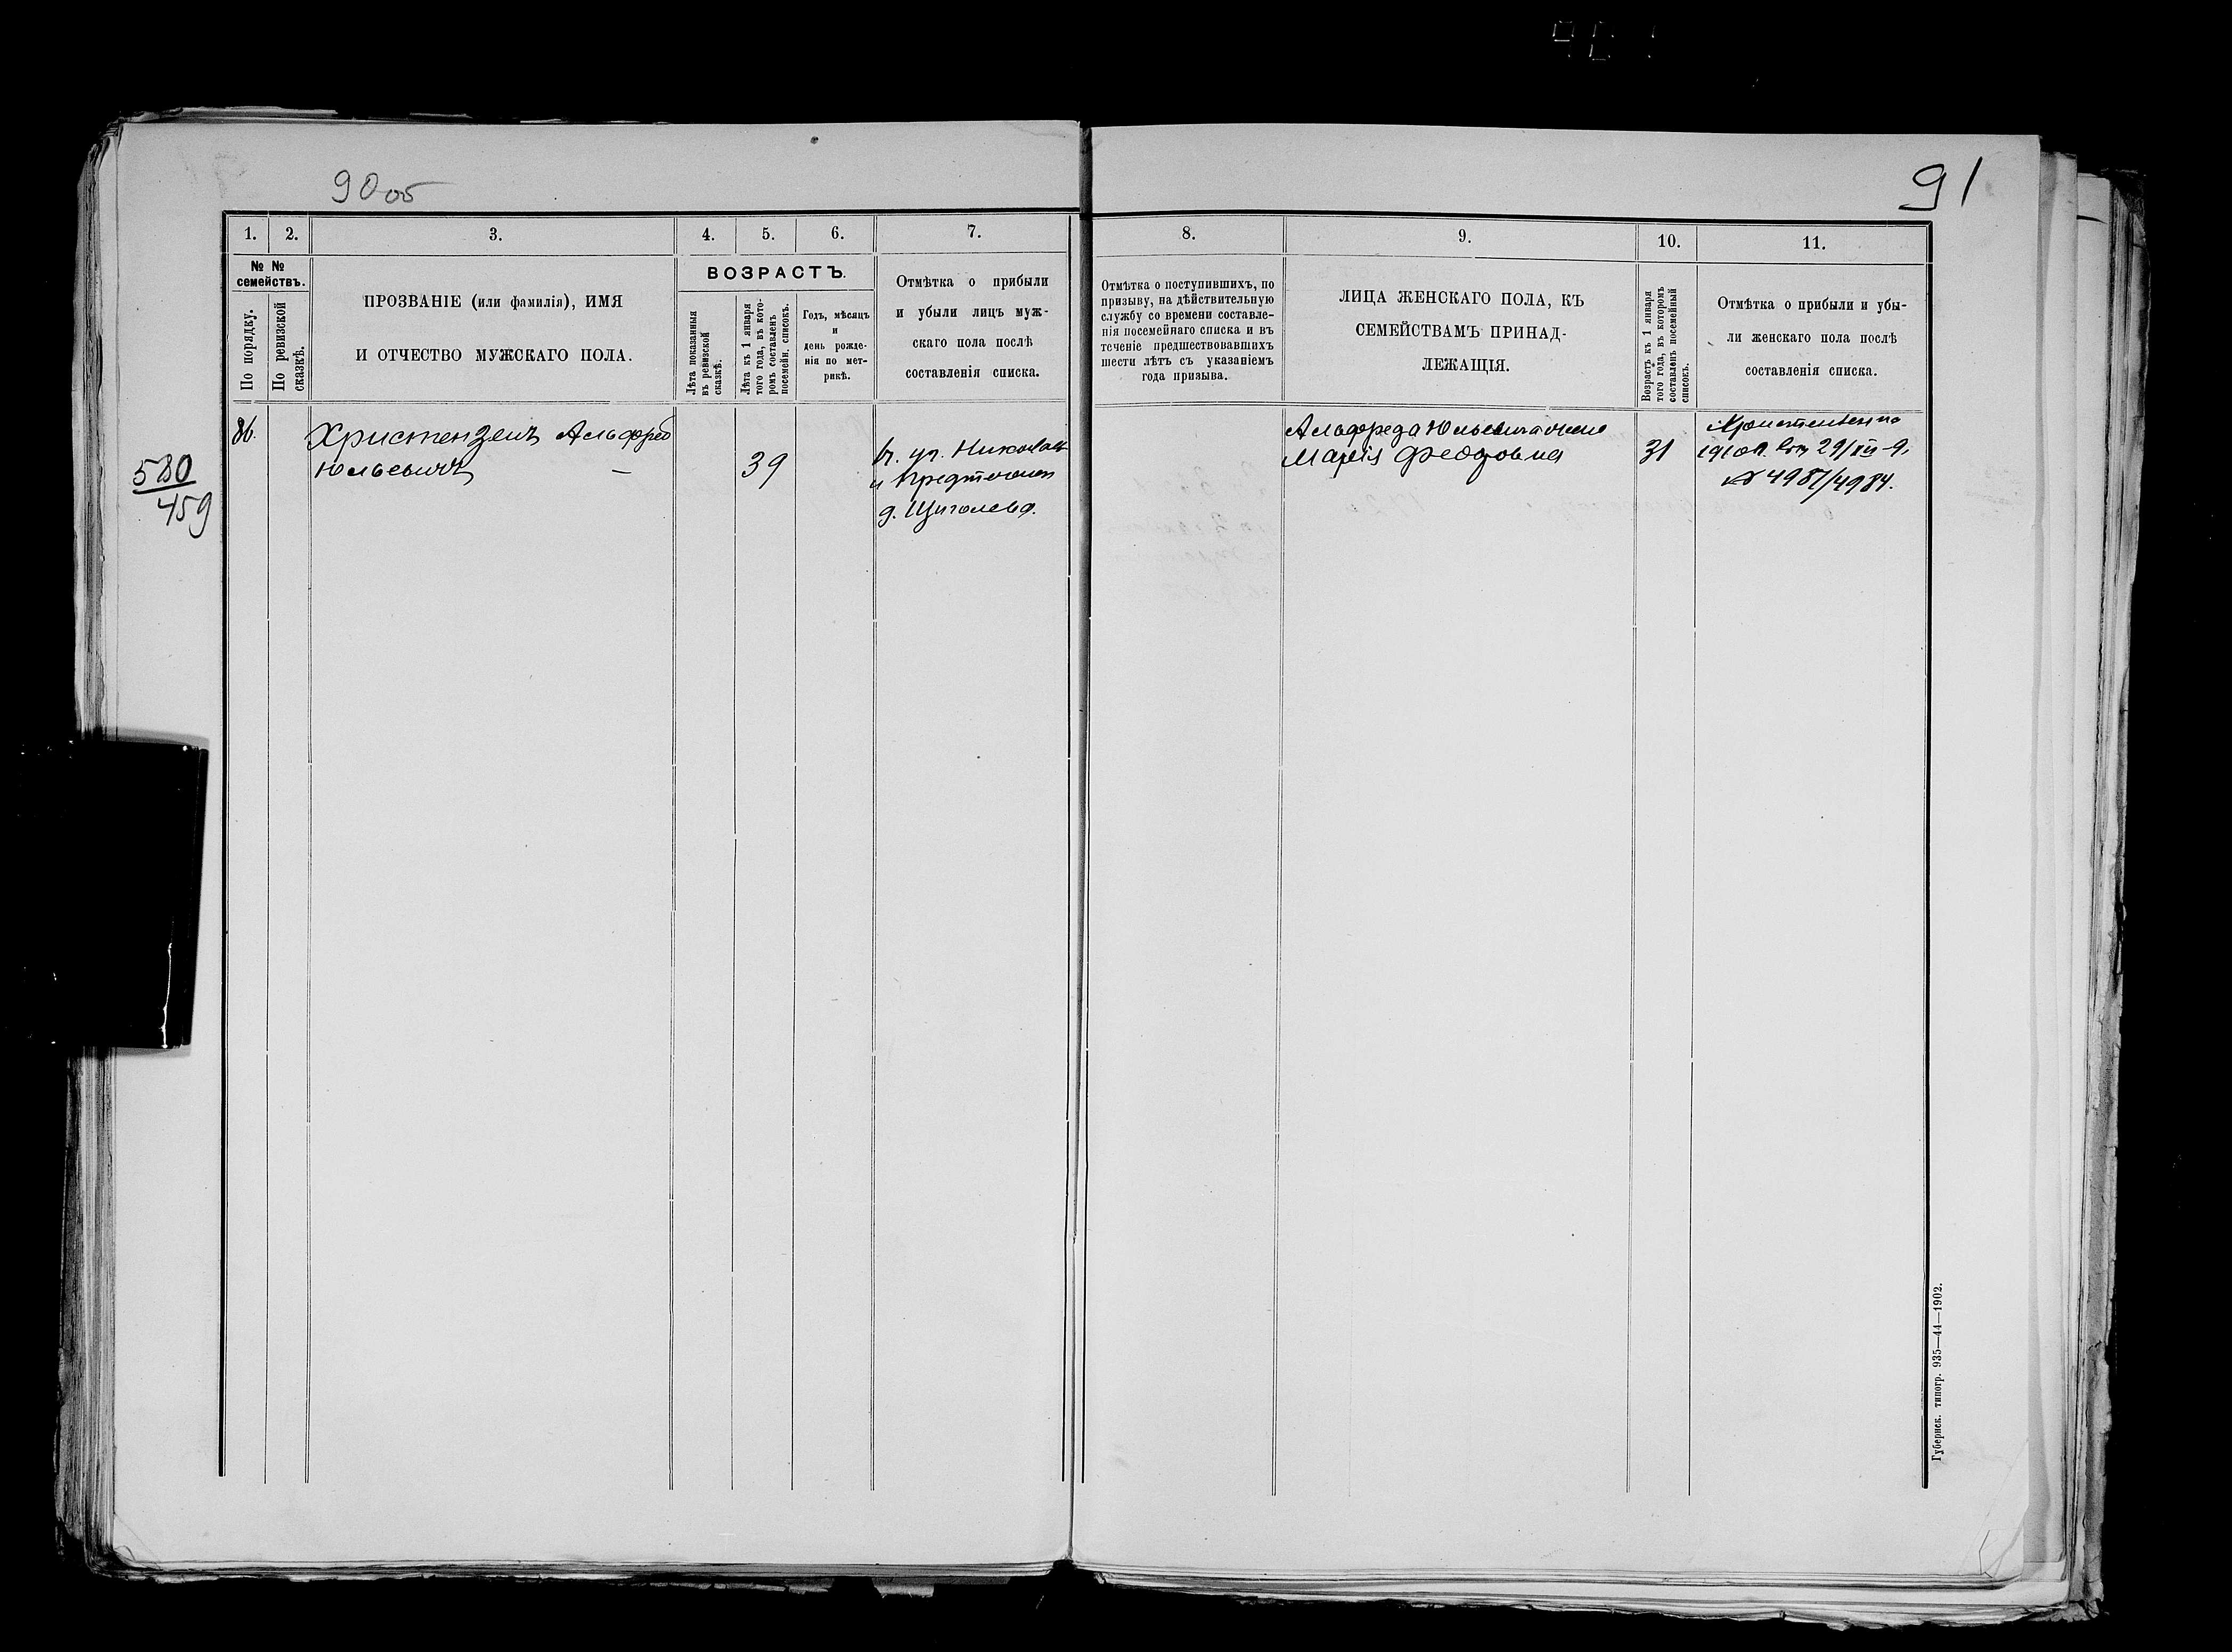 90 об
91
1.
2.
3.
4.
5.
6.
7.
8.
9.
10.
11.
№ №
семействъ.
По порядку.
По ревизской
сказкѣ.
ПРОЗВАНІЕ (или фамилія), ИМЯ
И ОТЧЕСТВО МУЖСКАГО ПОЛА.
ВОЗРАСТЪ.
Лѣта показанныя
въ ревизской
сказкѣ.
Лѣта къ 1 января
того года, въ кото-
ромъ составленъ
посемейн. списокъ.
Годъ, мѣсяцъ
и
день рожде-
нія по мет-
рикѣ.
Отмѣтка о прибыли
и убыли лицъ муж-
скаго пола послѣ
составленія списка.
Отмѣтка о поступившихъ, по
призыву, на дѣйствительную
службу со времени составле-
нія посемейнаго списка и въ
теченіе предшествовавшихъ
шести лѣтъ съ указаніемъ
года призыва.
ЛИЦА ЖЕНСКАГО ПОЛА, КЪ
СЕМЕЙСТВАМЪ ПРИНАД-
ЛЕЖАЩІЯ.
Возрастъ къ 1 января
того года, въ которомъ
составленъ посемейный
списокъ.
Отмѣтка о прибыли и убы-
ли женскаго пола послѣ
составленія списка.
86.
580
459
Христензенъ Альфред
Юльевичъ —
39
уг.
и
д.
Альфреда Юльевича жена
Марія Федоровна
31
29/XII-9.
№ 4987/4984.
Губернск. типогр. 935—44—1902.